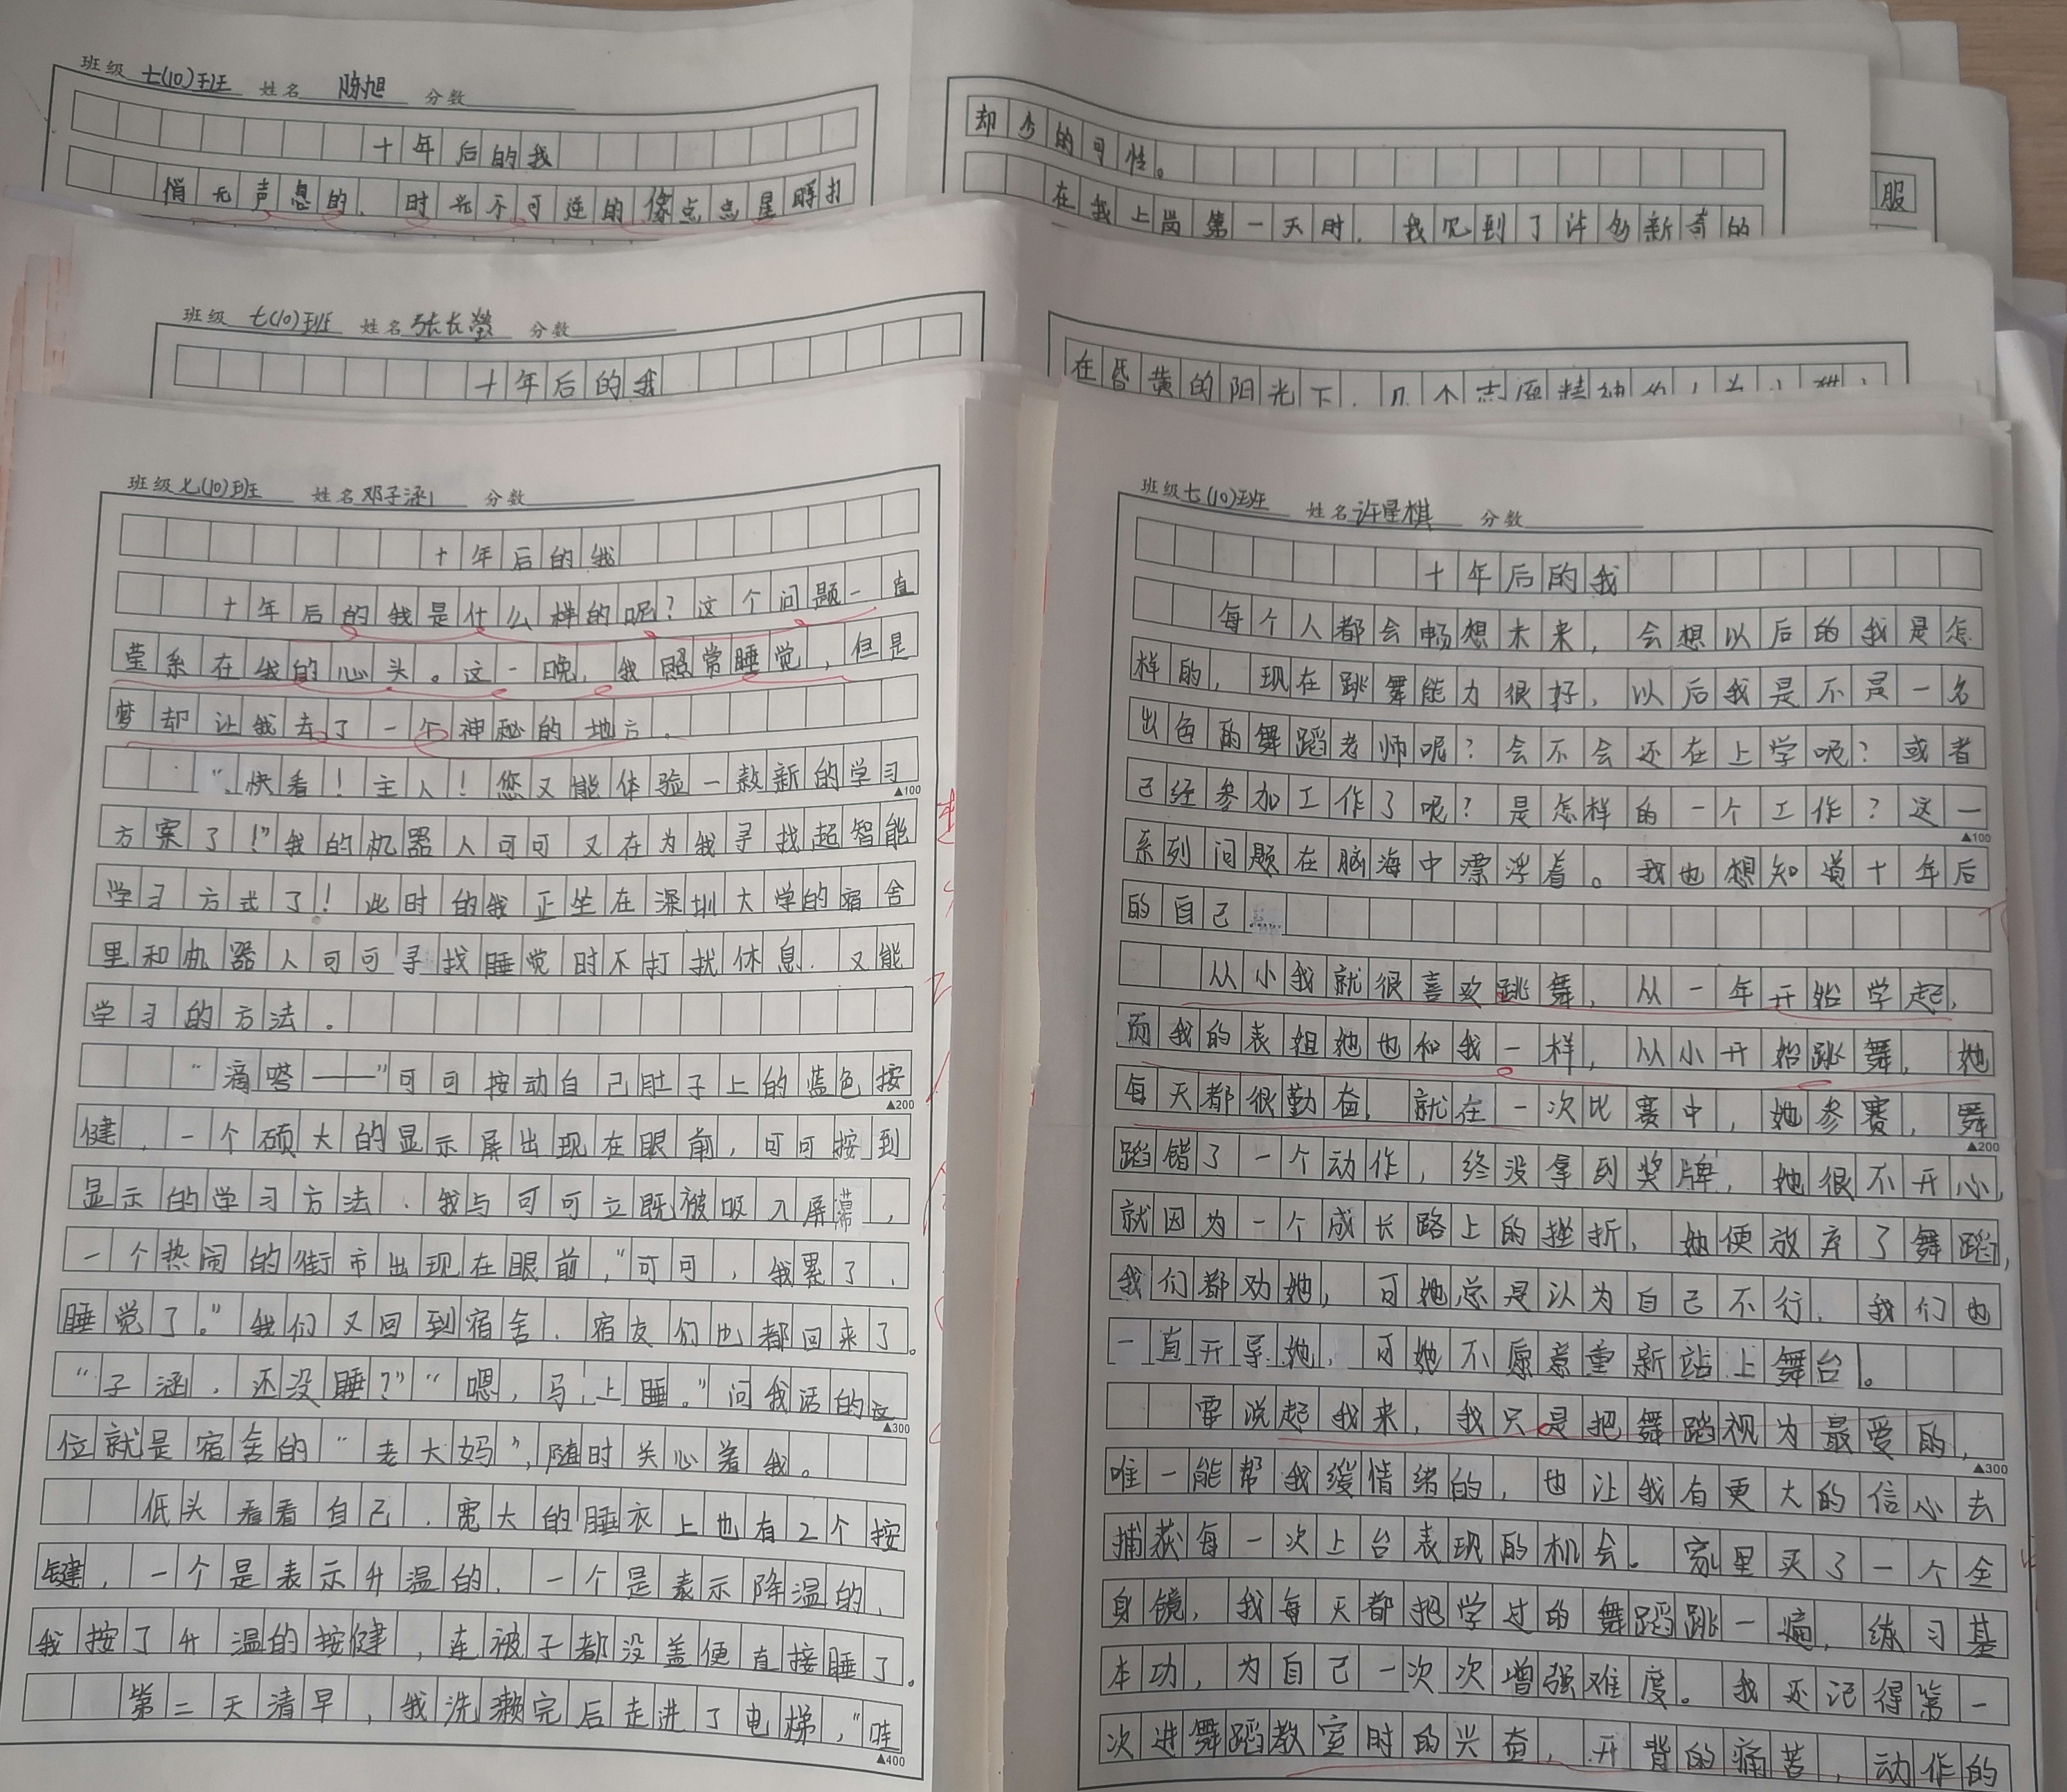 班级 七(10)班 姓名 陈旭 分数
十年后的我
悄无声息的，时光不可逆的像点点星晖扎
却少的可怜。
在我上岗第一天时，我见到了许多新奇的
服
班级 七(10)班 姓名 张长莹 分数
十年后的我
在昏黄的阳光下，几个志愿精神的
班级 七(10)班 姓名 邓子涵 分数
十年后的我
十年后的我是什么样的呢？这个问题一直
莹系在我的心头。这一晚，我照常睡觉，但是
梦却让我去了一个神秘的地方。
“快看！主人！您又能体验一款新的学习
▲100
方案了！”我的机器人可可又在为我寻找超智能
学习方式了！此时的我正坐在深圳大学的宿舍
里和机器人可可寻找睡觉时不打扰休息，又能
学习的方法。
“滴嗒——”可可按动自己肚子上的蓝色按
▲200
健，一个硕大的显示屏出现在眼前，可可按到
显示的学习方法，我与可可立既被吸入屏幕，
一个热闹的街市出现在眼前，“可可，我累了，
睡觉了。”我们又回到宿舍，宿友们也都回来了。
“子涵，还没睡？”“嗯，马上睡。”问我话的这
▲300
位就是宿舍的“老大妈”，随时关心着我。
低头看看自己，宽大的睡衣上也有2个按
键，一个是表示升温的，一个是表示降温的，
我按了升温的按健，连被子都没盖便直接睡了。
第二天清早，我洗漱完后走进了电梯，“哇
▲400
班级 七(10)班 姓名 许星棋 分数
十年后的我
每个人都会畅想未来，会想以后的我是怎
样的，现在跳舞能力很好，以后我是不是一名
出色的舞蹈老师呢？会不会还在上学呢？或者
已经参加工作了呢？是怎样的一个工作？这一
▲100
系列问题在脑海中漂浮着。我也想知道十年后
的自己……
从小我就很喜欢跳舞，从一年开始学起，
而我的表姐她也和我一样，从小开始跳舞，她
每天都很勤奋，就在一次比赛中，她参赛，舞
▲200
蹈错了一个动作，终没拿到奖牌，她很不开心，
就因为一个成长路上的挫折，她便放弃了舞蹈，
我们都劝她，可她总是认为自己不行，我们也
一直开导她，可她不愿意重新站上舞台。
要说起我来，我只是把舞蹈视为最爱的，
▲300
唯一能帮我缓情绪的，也让我有更大的信心去
捕获每一次上台表现的机会。家里买了一个全
身镜，我每天都把学过的舞蹈跳一遍，练习基
本功，为自己一次次增强难度。我还记得第一
次进舞蹈教室时的兴奋，开背的痛苦，动作的